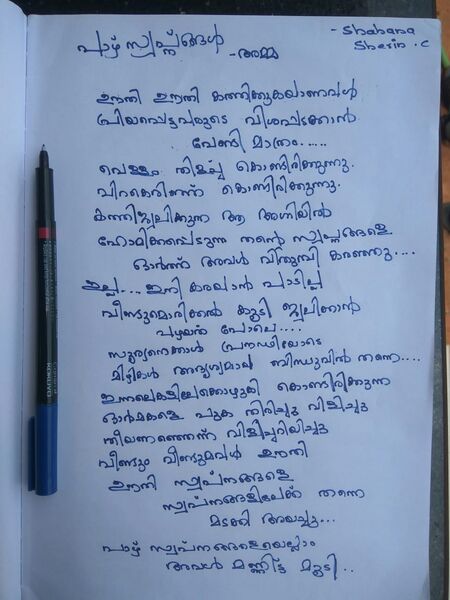 - Shahana
Sherin .C
പാഴ് സ്വപ്നങ്ങൾ
- അമ്മ
ഊതി ഊതി കത്തിക്കുകയാണവൾ
പ്രിയപ്പെട്ടവരുടെ വിശപ്പടക്കാൻ
വേണ്ടി മാത്രം.....
വെള്ളം തിളച്ച് കൊണ്ടിരിക്കുന്നു.
വിറകെരിഞ്ഞ് കൊണ്ടിരിക്കുന്നു.
കത്തിജ്വലിക്കുന്ന ആ അഗ്നിയിൽ
ഹോമിക്കപ്പെടുന്ന തന്റെ സ്വപ്നങ്ങളെ
ഓർത്ത് അവൾ വിതുമ്പി കരഞ്ഞു....
ഇല്ല.... ഇനി കരയാൻ പാടില്ല
വീണ്ടുമൊരിക്കൽ കൂടി ജ്വലിക്കാൻ
പഴയത് പോലെ....
സൂര്യനെക്കാൾ പ്രൗഢിയോടെ
മിഴികൾ അദൃശ്യമായ ബിന്ദുവിൽ തന്നെ....
ഇന്നലെകളിലേക്കൊഴുകി കൊണ്ടിരിക്കുന്ന
ഓർമകളെ പുക തിരിച്ചു വിളിച്ചു
തീയണഞ്ഞെന്ന് വിളിച്ചറിയിച്ചു
വീണ്ടും വീണ്ടുമവൾ ഊതി
ഊതി സ്വപ്നങ്ങളെ
സ്വപ്നങ്ങളിലേക്ക് തന്നെ
മടക്കി അയച്ചു...
പാഴ് സ്വപ്നങ്ങളെയെല്ലാം
അവൾ മണ്ണിട്ട് മൂടി..